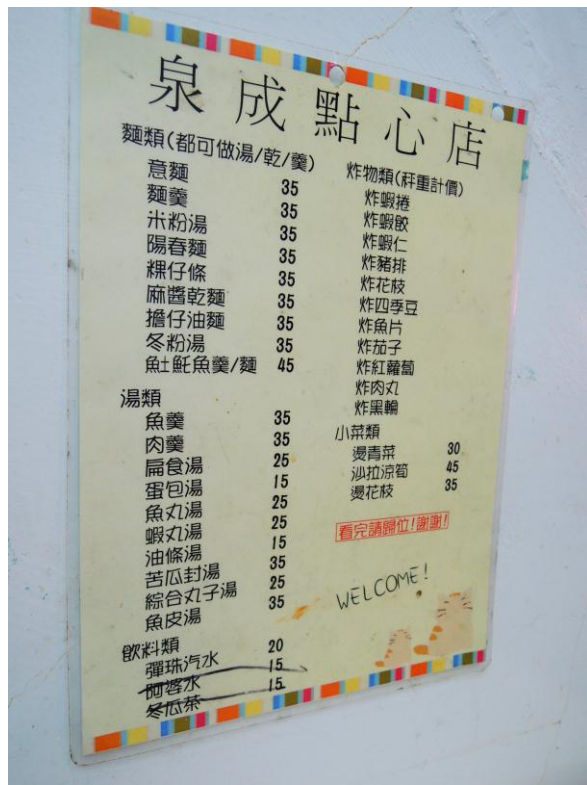 泉成點心店
麵類(都可做湯/乾/羹)
意麵 35
麵羹 35
米粉湯 35
陽春麵 35
粿仔條 35
麻醬乾麵 35
擔仔油麵 35
冬粉湯 35
魚土魠魚羹/麵 45
湯類
魚羹 35
肉羹 35
扁食湯 25
蛋包湯 15
魚丸湯 25
蝦丸湯 25
油條湯 15
苦瓜封湯 35
綜合丸子湯 25
魚皮湯 35
飲料類
彈珠汽水 20
阿婆水 15
冬瓜茶 15
炸物類(秤重計價)
炸蝦捲
炸蝦餃
炸蝦仁
炸豬排
炸花枝
炸四季豆
炸魚片
炸茄子
炸紅蘿蔔
炸肉丸
炸黑輪
小菜類
燙青菜 30
沙拉涼筍 45
燙花枝 35
看完請歸位!謝謝!
WELCOME!